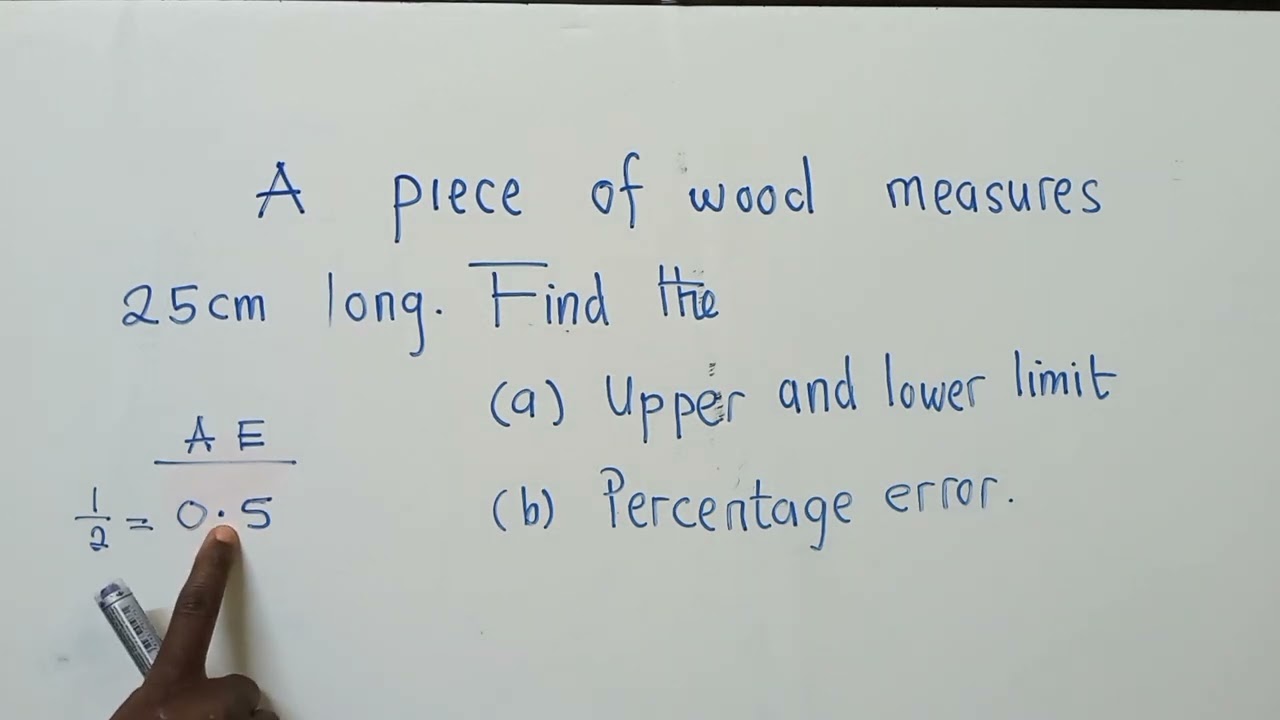 A piece of wood measures
25cm long. Find the
(a) Upper and lower limit
(b) Percentage error.
A E
1/2 = 0.5